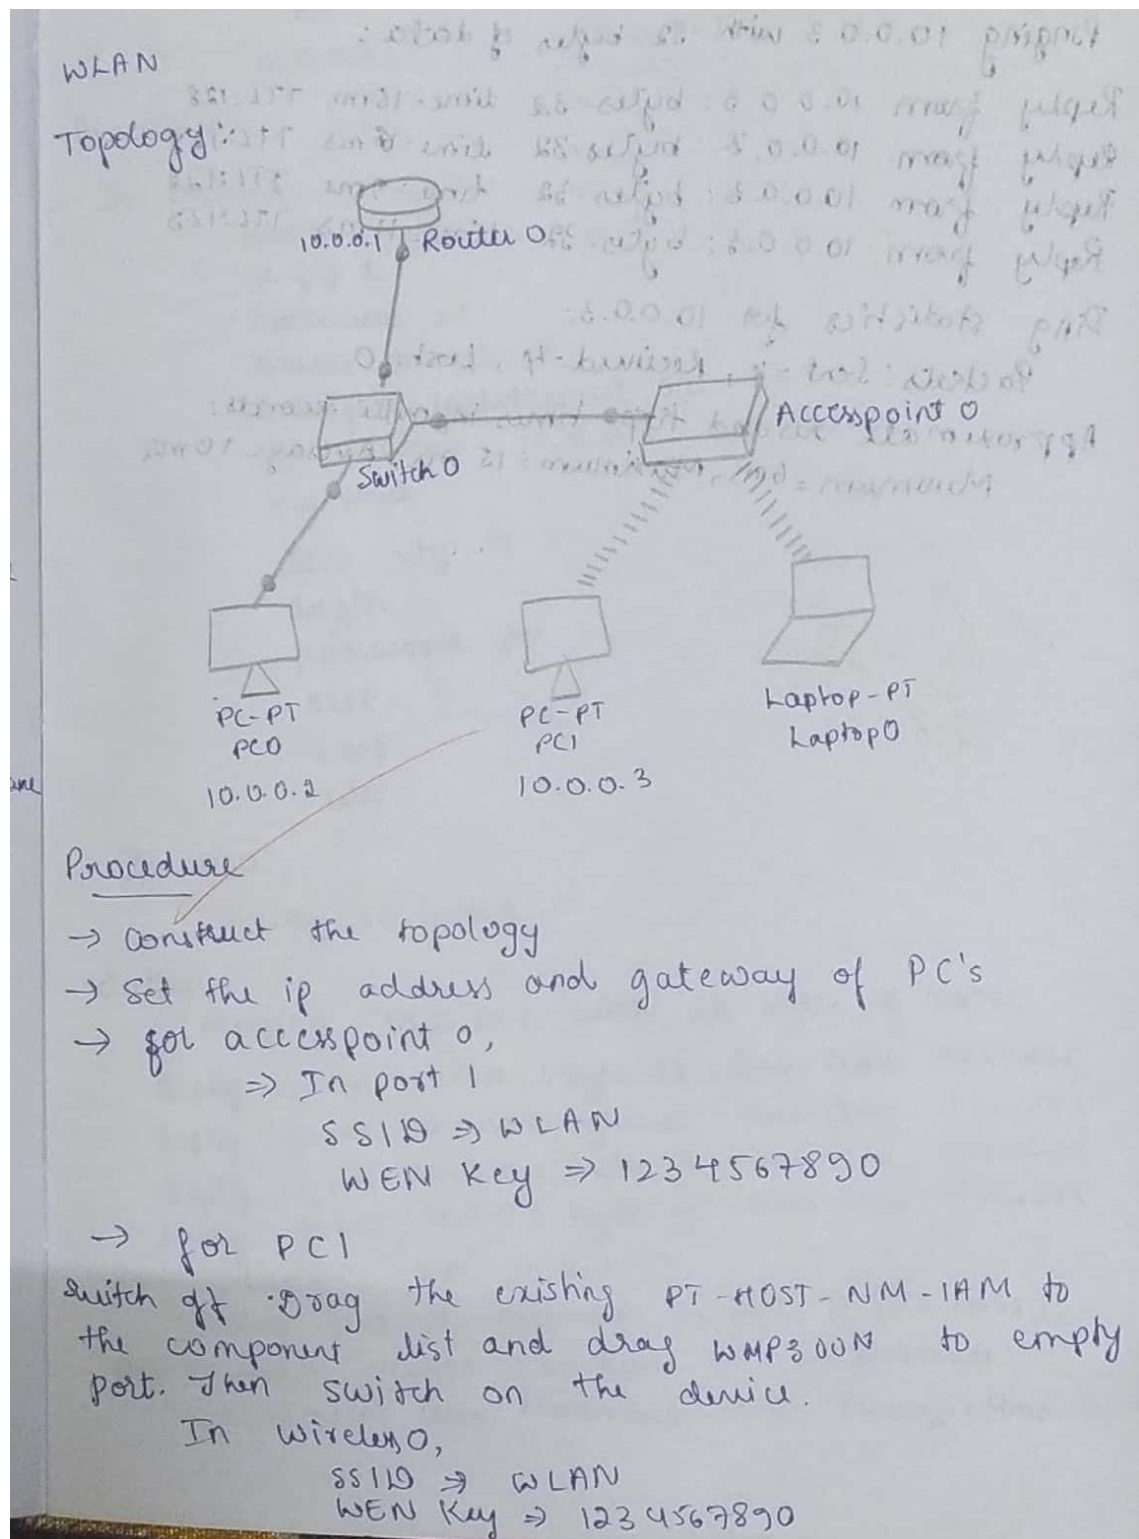 WLAN
Topology:
10.0.0.1 Router 0
Accesspoint 0
Switch 0
PC-PT
PC0
10.0.0.2
PC-PT
PC1
10.0.0.3
Laptop-PT
Laptop0
Procedure
→ Construct the topology
→ Set the ip address and gateway of PC's
→ for accesspoint 0,
⇒ In port 1
SSID ⇒ WLAN
WEN Key ⇒ 1234567890
→ for PC1
Switch off. Drag the existing PT-HOST-NM-1AM to
the component list and drag WMP300N to empty
port. Then switch on the device.
In Wireless0,
SSID ⇒ WLAN
WEN Key ⇒ 1234567890